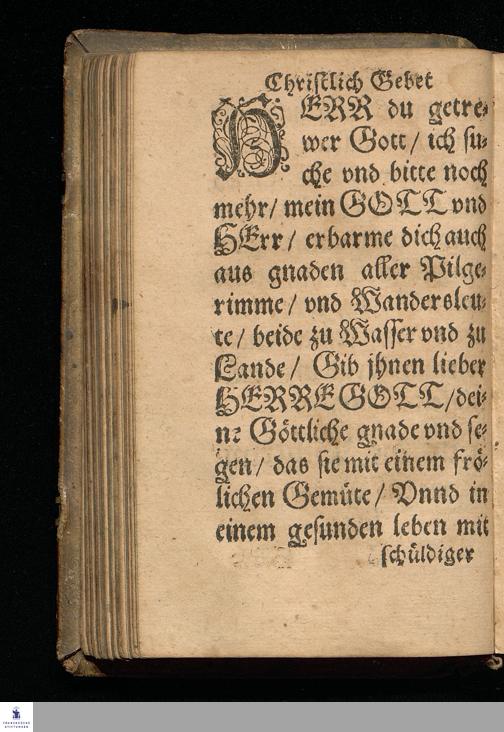 Christlich Gebet
HERR du getre⸗
wer Gott/ ich su⸗
che vnd bitte noch
mehr/ mein GOTT vnd
HErr/ erbarme dich auch
aus gnaden aller Pilge⸗
rimme/ vnd Wandersleu⸗
te/ beide zu Wasser vnd zu
Lande/ Gib jhnen lieber
HERRE GOTT/ dei⸗
ne Göttliche gnade vnd se⸗
gen/ das sie mit einem frö⸗
lichen Gemüte/ Vnnd in
einem gesunden leben mit
schüldiger
FRANCKESCHE
STIFTUNGEN